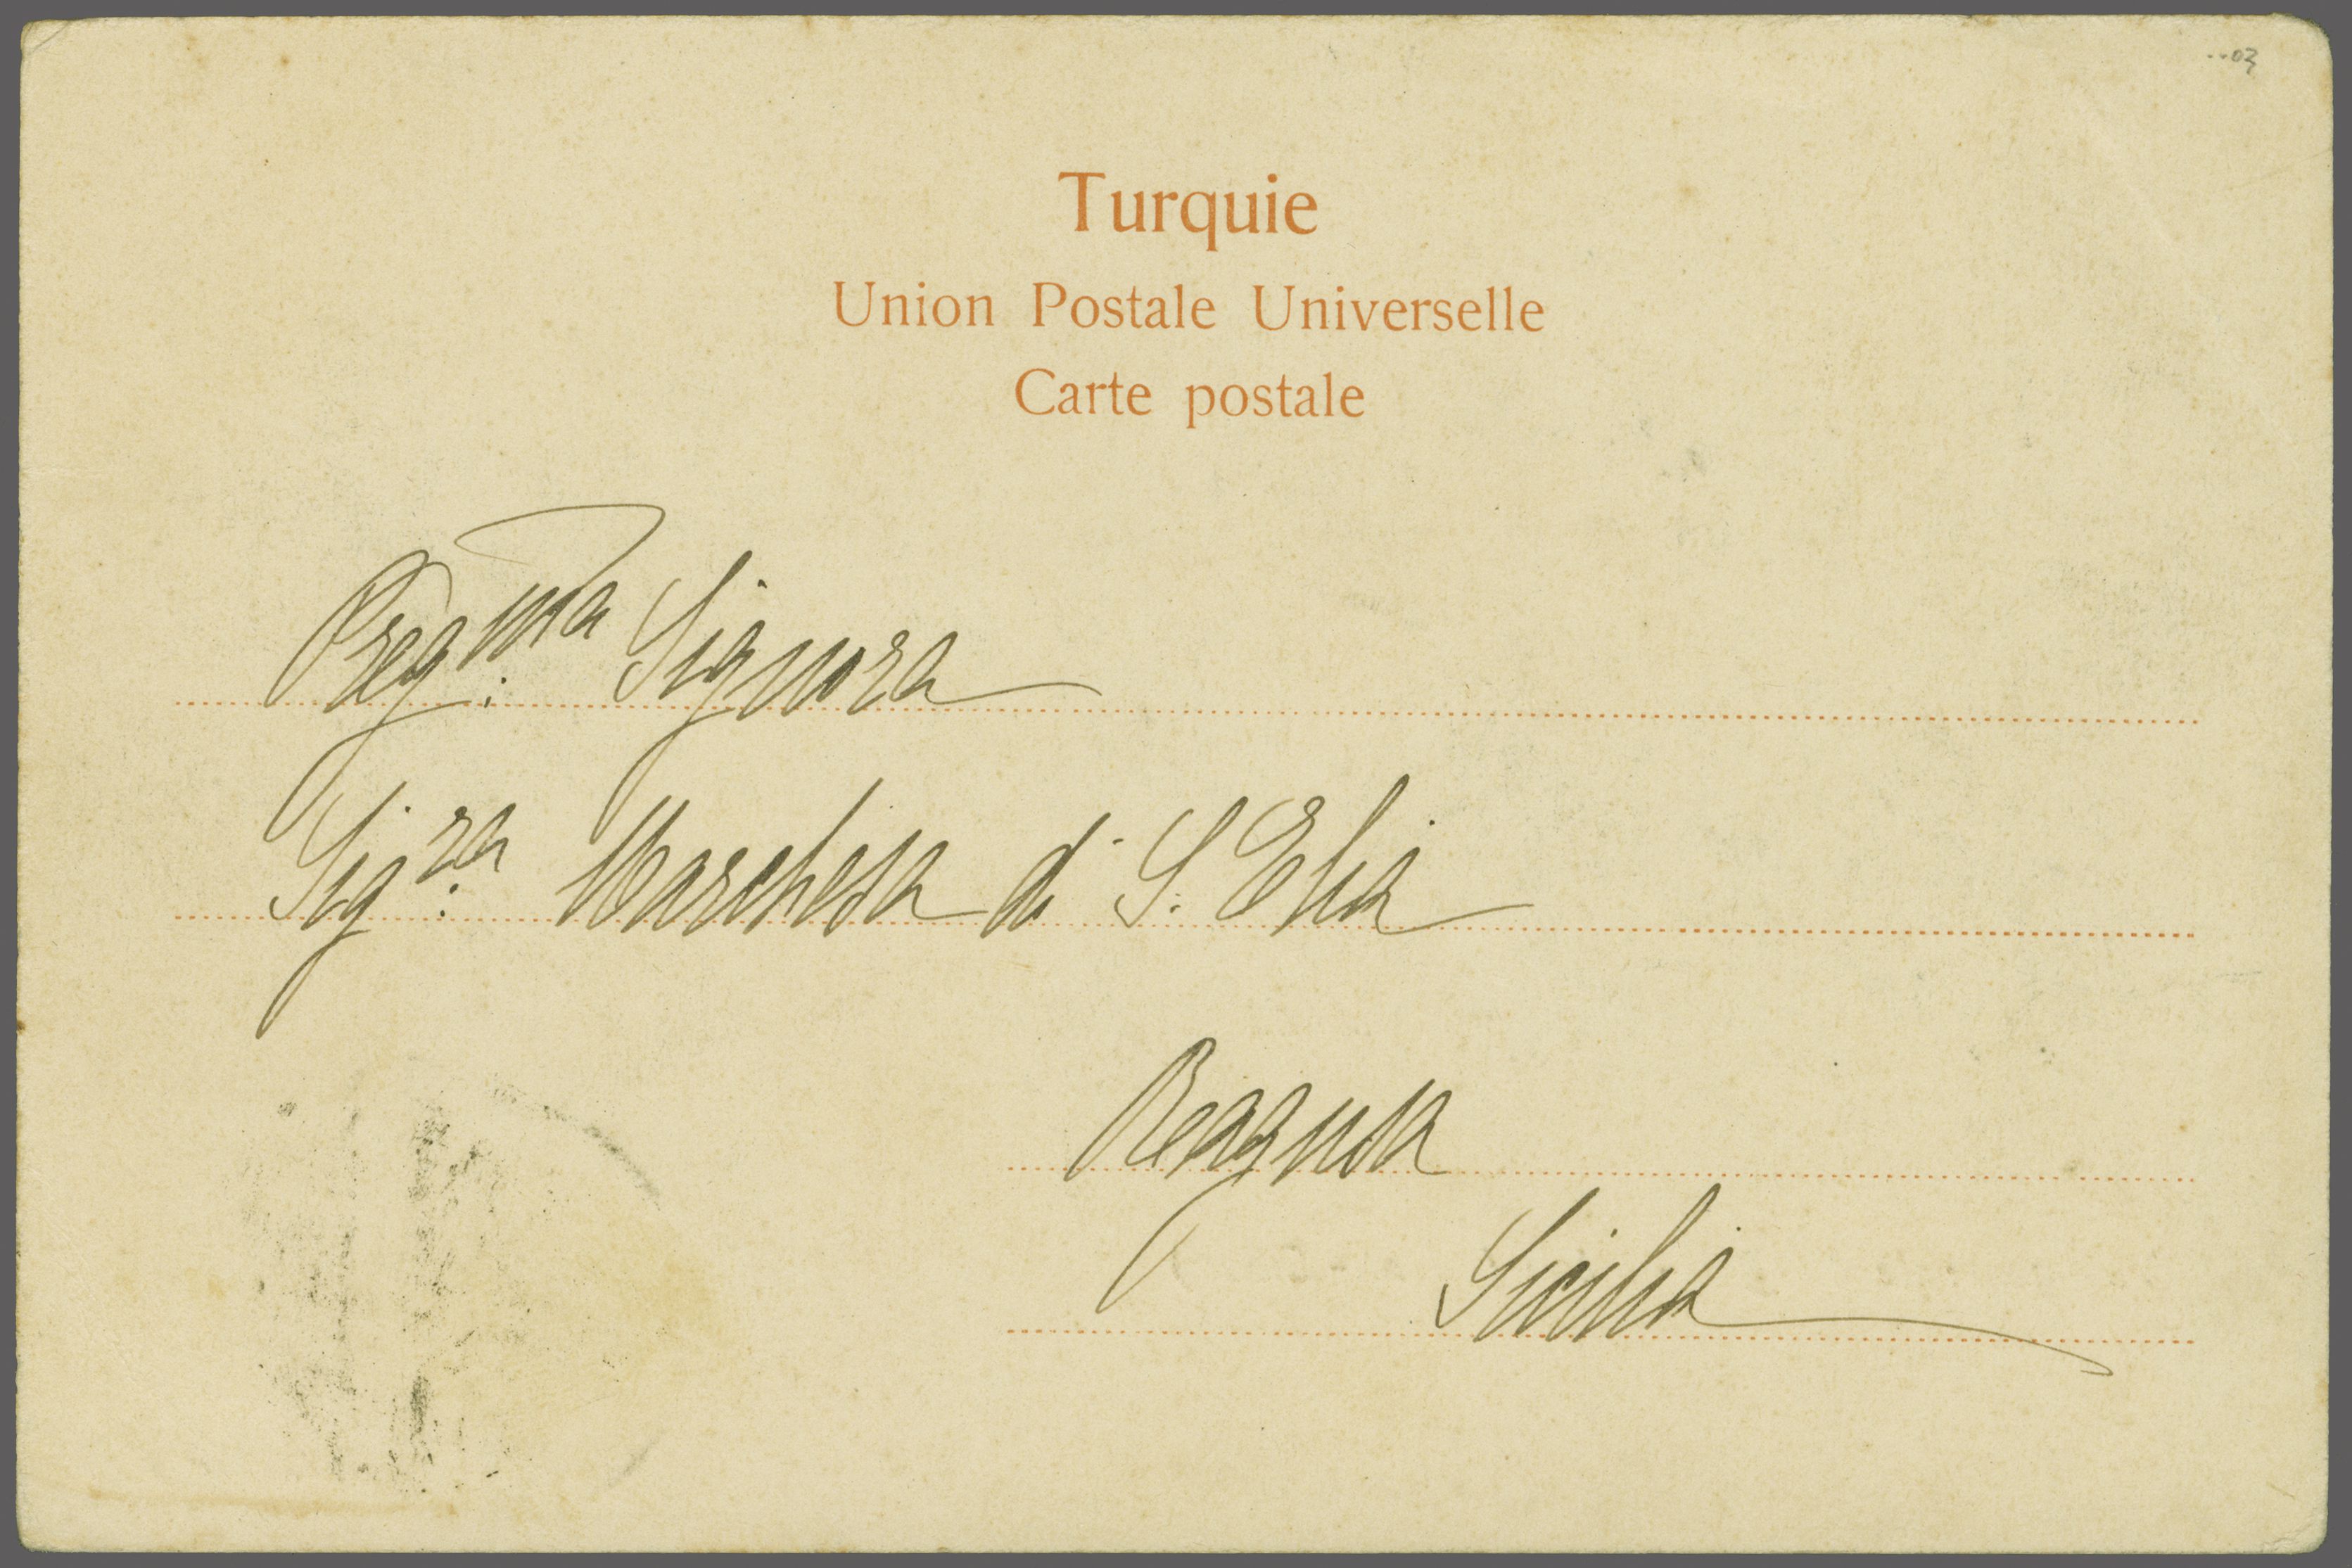 ..03
Turquie
Union Postale Universelle
Carte postale
Preg.ma Signora
Sig.ra Marchesa di S. Elia
Ragusa
Sicilia